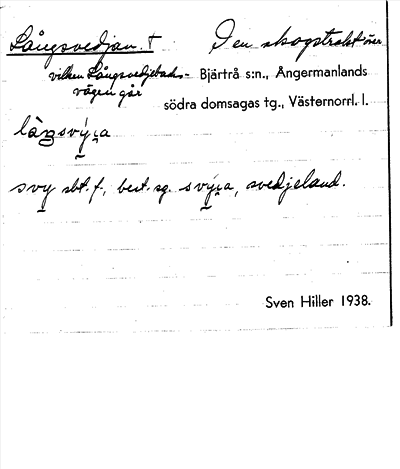 Långsvedjan. † I en skogstrakt över
vilken Långsvedjebacks- Bjärtrå s:n., Ångermanlands
vägen går
södra domsagas tg., Västernorrl. l.
svy sbt. f., best. sg. svýa, svedjeland.
Sven Hiller 1938.